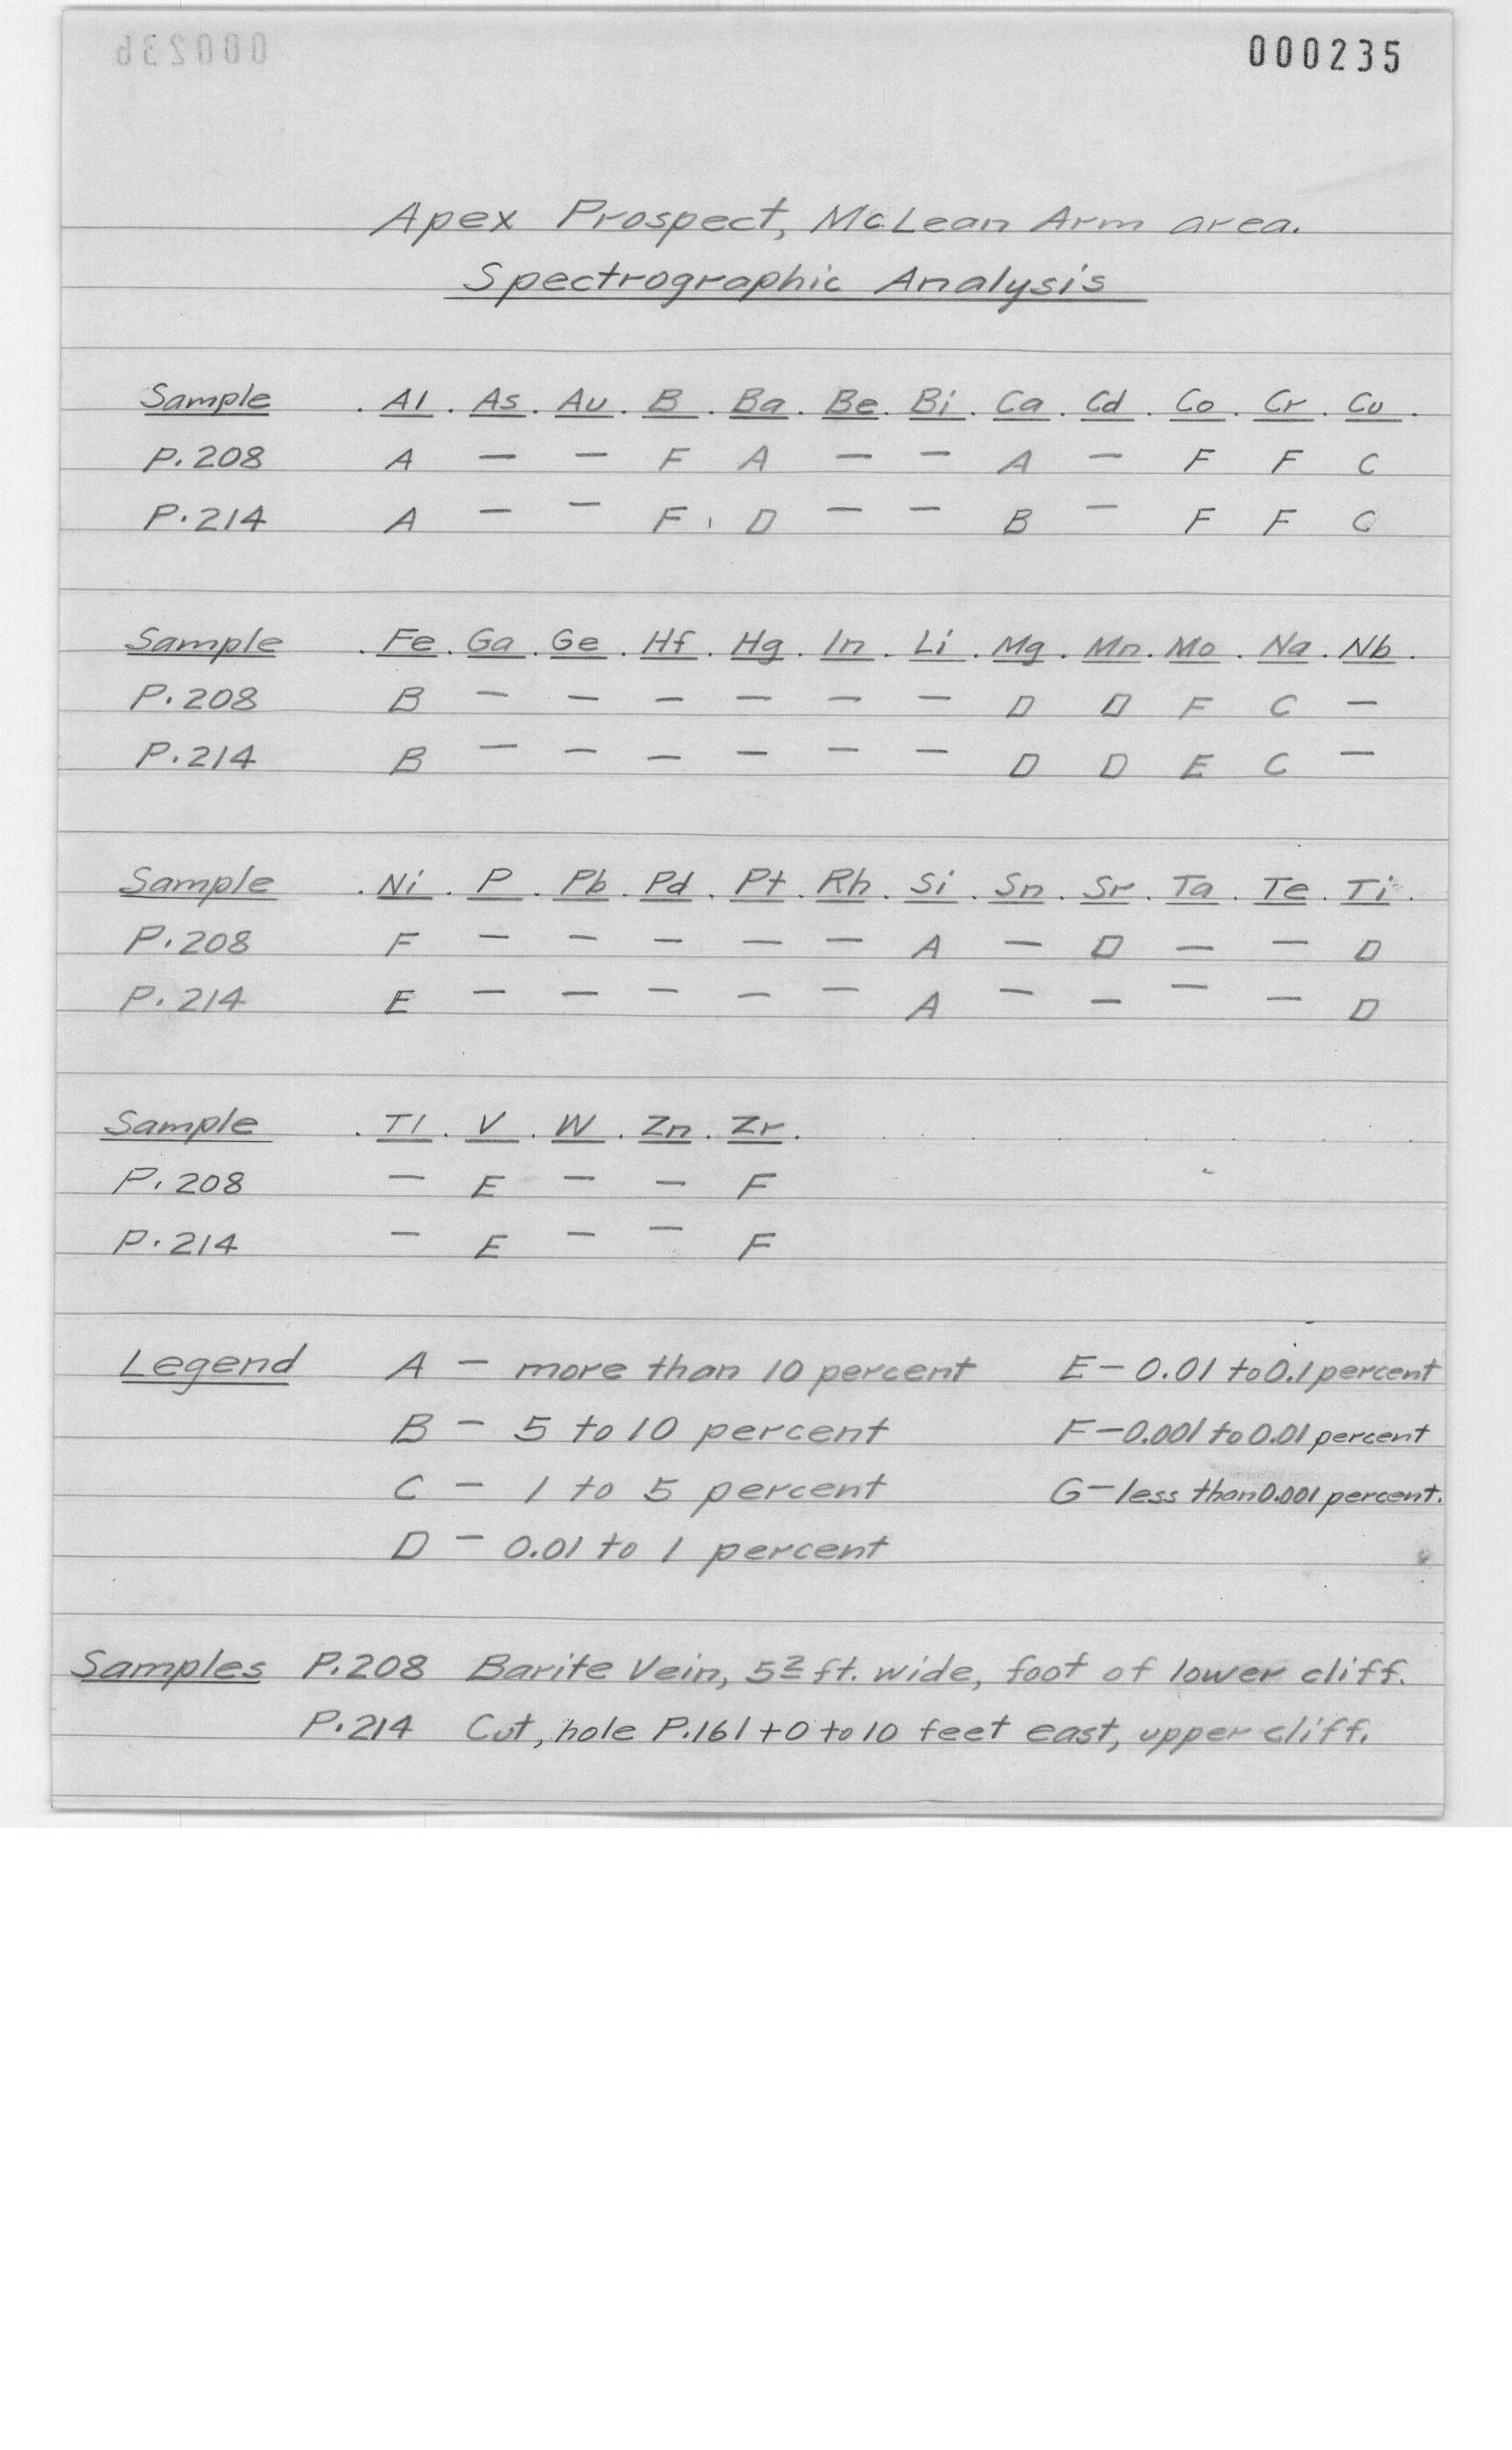 000236
000235
Apex Prospect, McLean Arm area.
Spectrographic Analysis
Sample . Al . As . Au . B . Ba . Be . Bi . Ca . Cd . Co . Cr . Cu .
P.208 A — — F A — — A — F F C
P.214 A — — F D — — B — F F C
Sample . Fe . Ga . Ge . Hf . Hg . In . Li . Mg . Mn . Mo . Na . Nb .
P.208 B — — — — — — D D F C —
P.214 B — — — — — — D D E C —
Sample . Ni . P . Pb . Pd . Pt . Rh . Si . Sn . Sr . Ta . Te . Ti .
P.208 F — — — — — A — D — — D
P.214 E — — — — — A — — — — D
Sample . Tl . V . W . Zn . Zr .
P.208 — E — — F
P.214 — E — — F
Legend A — more than 10 percent E — 0.01 to 0.1 percent
B — 5 to 10 percent F — 0.001 to 0.01 percent
C — 1 to 5 percent G — less than 0.001 percent.
D — 0.01 to 1 percent
Samples P.208 Barite Vein, 5² ft. wide, foot of lower cliff.
P.214 Cut, hole P.161 + 0 to 10 feet east, upper cliff.